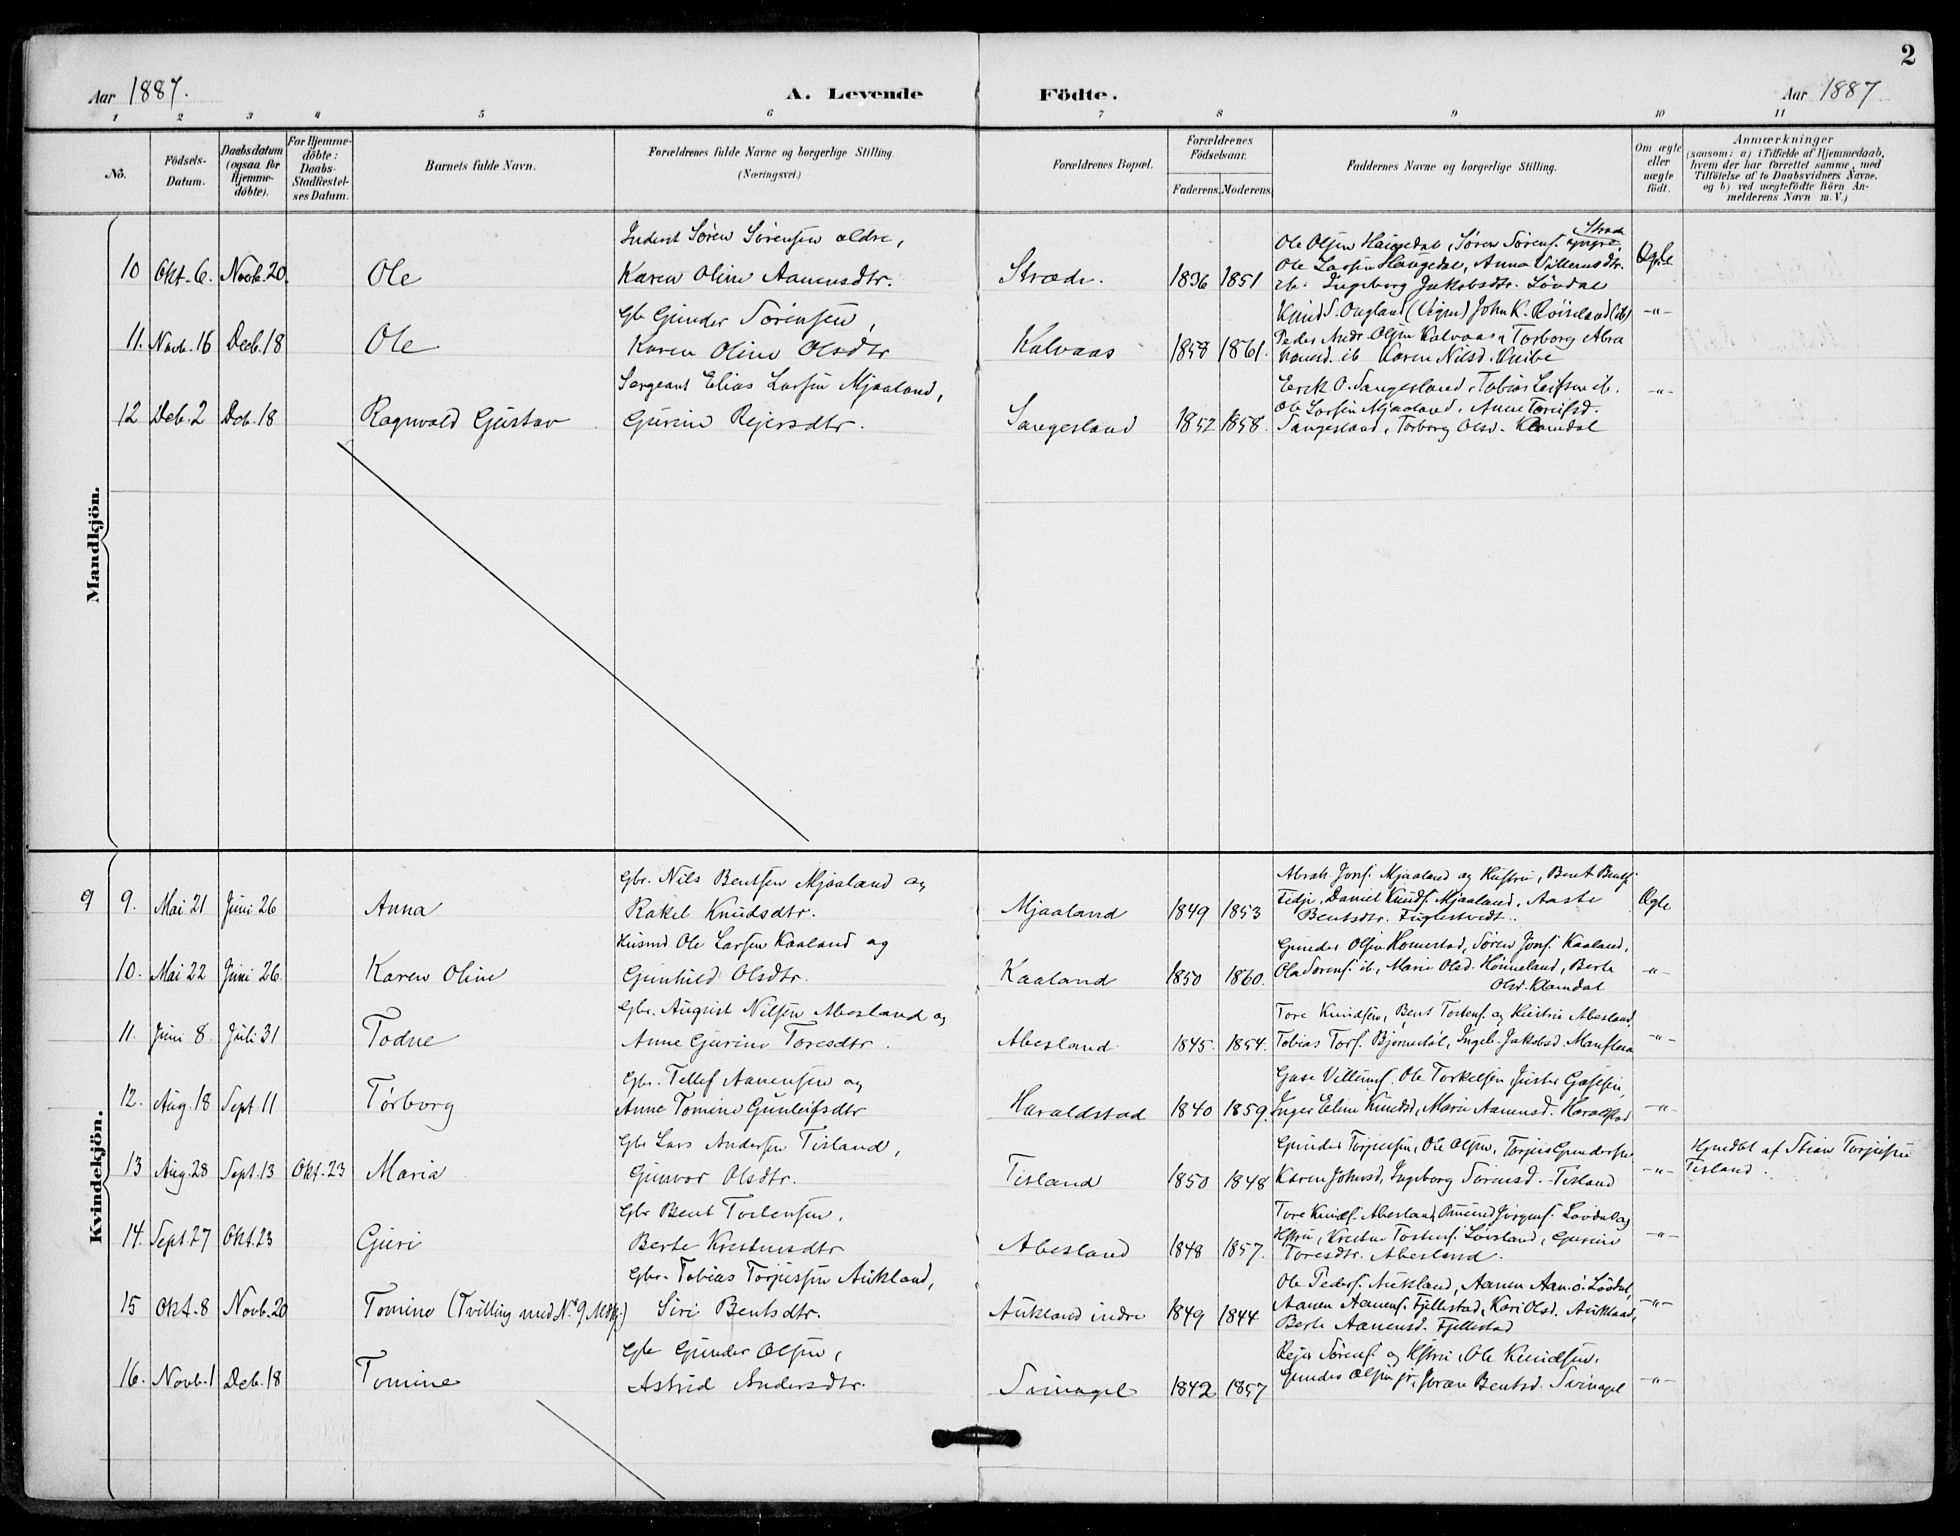 2
Aar 1887.
A. Levende Födte.
Aar 1887
1 2 3 4 5 6 7 8 9 10 11
No.
Födsels-Datum.
Daabsdatum (ogsaa for Hjemme-döbte).
For Hjemme-döbte: Daabs-Stadfæstel-ses Datum.
Barnets fulde Navn.
Forældrenes fulde Navne og borgerlige Stilling.
(Næringsvei.)
Forældrenes Bopæl.
Forældrenes Födselsaar.
Faderens. Moderens.
Faddernes Navne og borgerlige Stilling.
Om ægte eller uægte födt.
Anmærkninger
(saasom: a) i Tilfælde af Hjemmedaab,
hvem der har forrettet samme, med
Tilföielse af to Daabsvidners Navne.
og b) ved uægtefödte Börn An-
melderens Navn m. V.)
Mandkjön.
Inderst Sören Sörensen ældre,
Stræde
Ole Olsen Haugedal, Sören Sörens. yngre,
10 Okt. 6. Novb. 20. Ole Karen Oline Aanensdtr. Stræde. 1836 1851 Ole Larsen Haugedal, Anna Villumsdtr. Ægte
ib. Ingeborg Jakobsdtr. Lövdal
Gb Gunder Sörensen,
Knud S. Ougland (Vegm) John K. Röiseland (ib) -"-
11. Novb. 16 Decb. 18 Ole Karen Oline Olsdtr Kalvaas 1858 1861. Peder Andr. Olsen Kalvaas, Torborg Abra
hamsd. ib Karen Nilsd. Knibe
Sergeant Elias Larsen Mjaaland,
Eerik O. Sangesland, Tobias Leifsen ib. -"-
12 Deb. 2 Dcb. 18 Ragnvald Gustav Gurine Rejersdtr. Sangesland 1852 1858. Ole Larsen Mjaaland, Anne
Sangesland, Torborg Olsd. Klomdal
Kvindekjön.
Gbr. Nils Bentsen Mjaaland og
Abrah. Jons. Mjaaland og Hustru, Bent Bents.
9 9. Mai 21 Juni 26 Anna Rakel Knudsdtr. Mjaaland 1849 1853 Daniel Knuds. Mjaaland, Aaste Ægte
Bentsdtr. Fuglestvedt.
Husmd Ole Larsen Kaaland og
Gunder Olsen Homestad, Sören Jons. Kaaland,
10. Mai 22 Juni 26. Karen Oline Gunhild Olsdtr. Kaaland 1850 1860. Ola Sorens. ib, Marie Olsd. Hönneland, Berte -"-
Olsd. Klomdal
Gbr. August Nilsen Abesland og
Tore Knudsen, Bent Tostens. og Hustru Abesland,
11. Juni 8. Juli 31 Todne Anne Gurine Toresdtr. Abesland 1845. 1854. Tobias Tors. Bjornestöl, Ingeb. Jakobsd. Manflaa -"-
Gbr. Tellef Aanensen og
Gase Villums. Ole Torkelsen, Juster Gasesen,
12. Aug. 18 Sept. 11 Törborg Anne Tomine Gunleifsdtr Haraldstad 1840 1859. Inger Eline Knudsd, Marie Aanensd. Haraldstad -"-
Gbr Lars Andersen Tisland,
Gunder Torjussen, Ole Olsen, Torjus Gundersen
13 Aug. 28 Sept. 13 Okt. 23 Maria Gunvor Olsdtr. Tisland 1850 1848 Karen Johnsd, Ingeborg Sörensd. Tisland -"- Hjmdbt af Stian Torjusen
Tisland.
Gbr Bent Tostensen,
Tore Knuds. Abesland, Omund Jörgens. Lovdal og
14. Sept. 27 Okt. 23 Guri Berte Krestensdtr Abesland 1848 1857. Hstru, Kresten Tostens. Lövsland, Gurine -"-
Toresdtr. Abesland.
Gbr. Tobias Torjussen Aukland,
Ole Peders. Aukland, Aanen Lövdal,
15 Okt. 8 Novb. 20 Tomine (Tvilling med No. 9 Mkj.) Siri Bentsdtr. Aukland indre 1849 1844 Aanen Aanens. Fjellestad, Kari Olsd. Aukland, -"-
Berte Aanensd. Fjellestad
Gbr Gunder Olsen,
Rejer Sörens. og Hstru, Ole Knudsen,
16. Novb. 1 Deb. 18 Tomine Astrid Andersdtr. Svinagel 1842 1857 Gunder Olsen jr, Joran Bentsd. Svinagel -"-